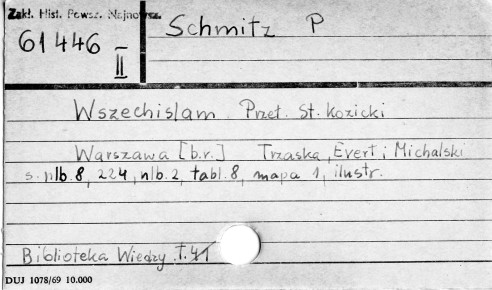 Zakł. Hist. Powsz. Najnowsz.
61446
II
Schmitz P
Wszechislam. Przeł. St. Kozicki
Warszawa [b.r.] Trzaska, Evert i Michalski
s. nlb. 8, 224, nlb. 2, tabl. 8, mapa 1, ilustr.
Biblioteka Wiedzy. T. 41
DUJ 1078/69 10.000